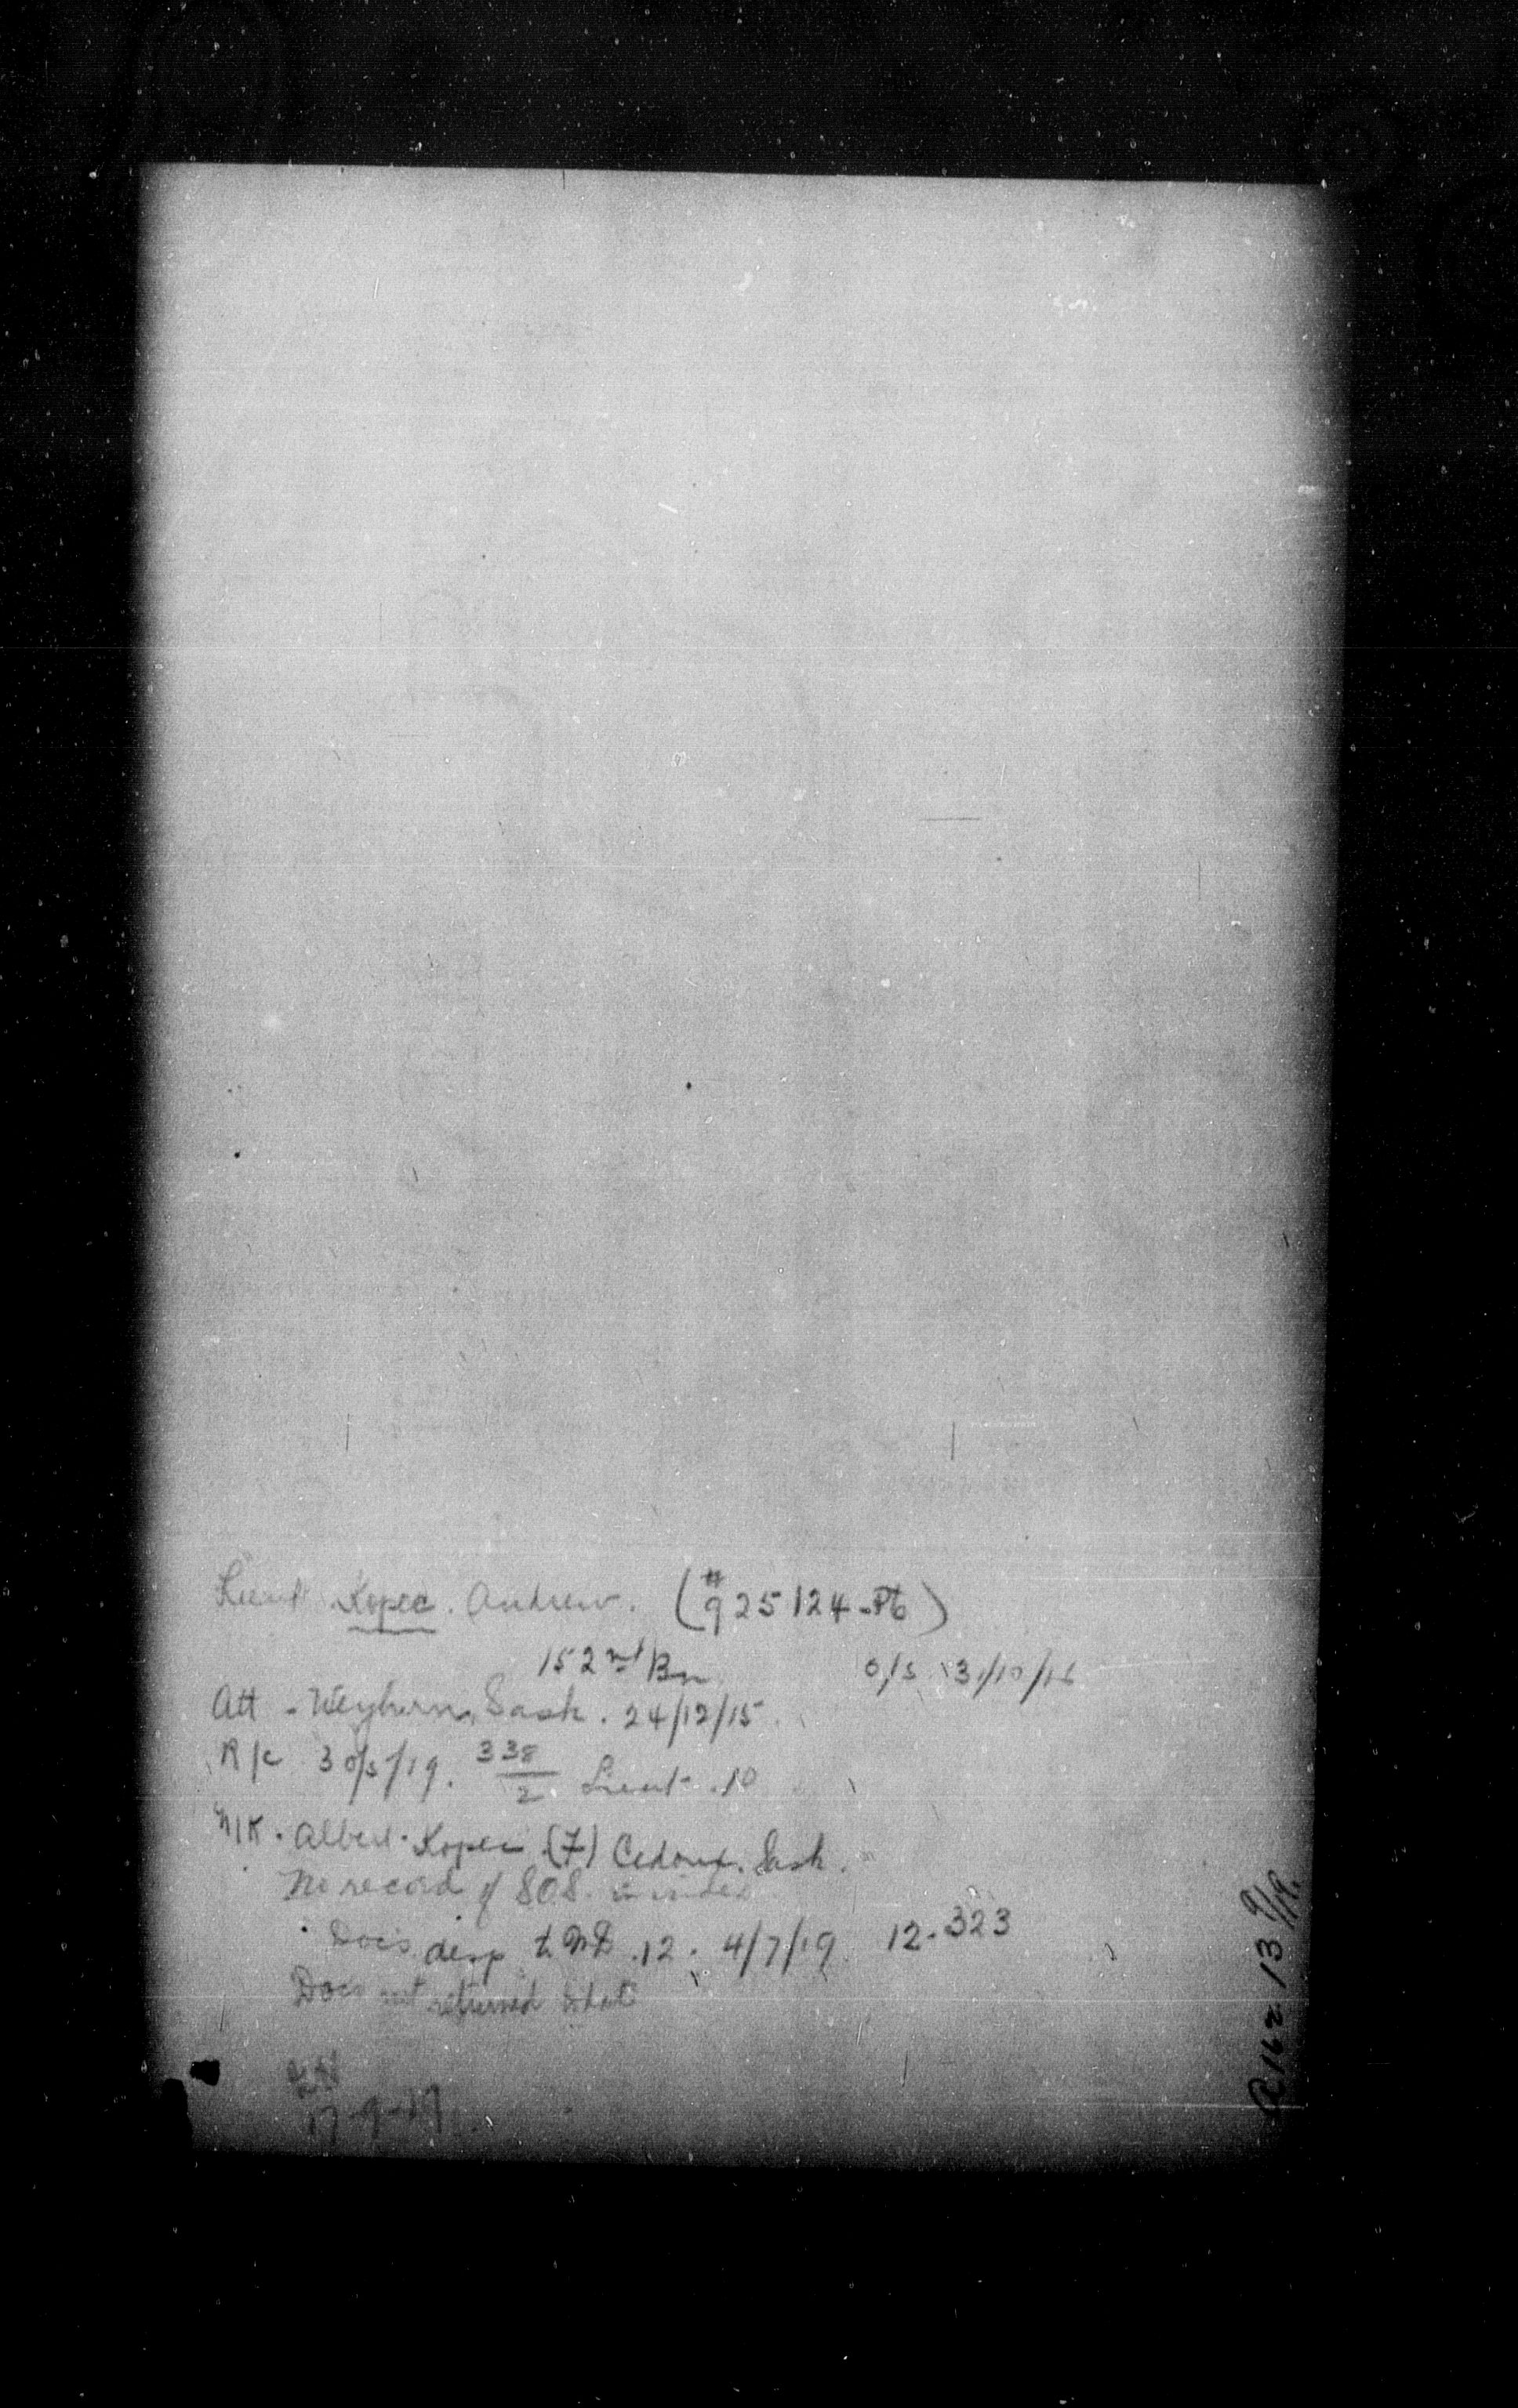 Lieut Kopec. Andrew. (#925124-Pte)
152nd Bn o/s 31/10/16
Att - Weyburn, Sask. 24/12/15.
R/c 30/5/19. 338/2 Lieut. 10
N/K. Albert Kopec (F) Cedoux. Sask.
No record of SOS. in index
Docs desp to MD .12. 4/7/19. 12-323
Docs not returned
17-9-19
R162 13 9/19.